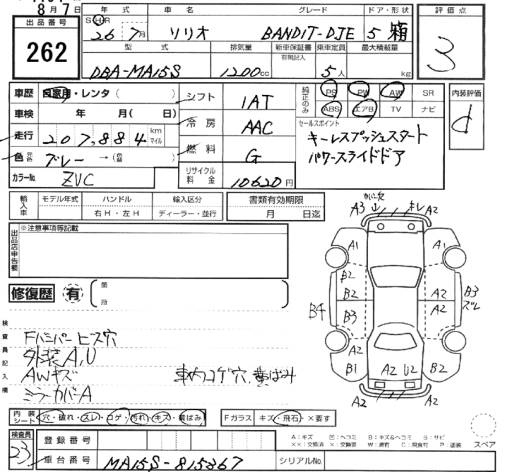 8月7日
出品番号
262
年式
車名
グレード
ドア・形状
S H R 26年 7月
ソリオ
BANDIT-DJE
5 箱
評価点
3
型式
排気量
新車保証書
有限記入
乗車定員
最大積載量
DBA-MA15S
1200cc
5人
kg
車歴 自家用・レンタ( )
車検 年 月( 日)
走行 207,884 km マイル
色 グレー →
カラーNo. ZVC
シフト 1AT
冷房 AAC
燃料 G
リサイクル料金 10620円
純正のみ
PS PW AW SR
ABS エアB TV ナビ
セールスポイント
キーレスプッシュスタート
パワースライドドア
内装評価
d
輸入車
モデル年式
ハンドル
輸入区分
右H・左H
ディーラー・並行
書類有効期限
月 日迄
出品店申告欄
※注意事項等記載
修復歴 有
箇所
検査員記入欄
FバンパーヒズI穴
外装A,U
AWキズ
ミラーカバーA
車内コゲ穴,黄ばみ
A3 キレ A2
A1 A1
B2 A2
B2 A2 B3
B4 B3 A2 ズレ
B1 A2 U2 B2
A2 A2
内装シート 穴・破れ・スレ・コゲ・汚れ・キズ・黄ばみ
Fガラス キズ・飛石・×要す
スペア
検査員
23
登録番号
車台番号 MA15S-815367
シリアルNo.